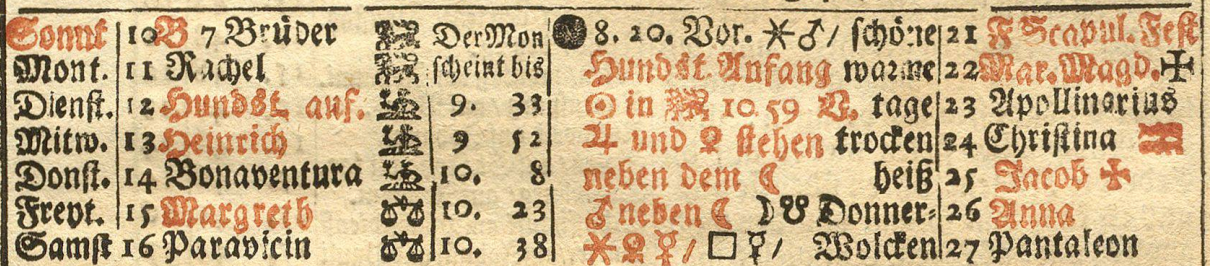 Sonnt 10 B 7 Brüder Der Mon 8. 20. Vor. ⚹ ♂ / schöne 21 F Scapul. Fest
Mont. 11 Rachel scheint bis Hundst. Anfang warme 22 Mar. Magd. ✠
Dienst. 12 Hundst. anf. 9. 33 ☉ in ♌ 10 59 V. tage 23 Apollinarius
Mitw. 13 Heinrich 9 52 ♃ und ♀ stehen trocken 24 Christina
Donst. 14 Bonaventura 10. 8 neben dem ☾ heiß 25 Jacob ✠
Freyt. 15 Margreth ♎ 10. 23 ♂ neben ☾ ☽ ☋ Donner⸗ 26 Anna
Samst 16 Paravicin ♎ 10. 38 ⚹ ♀ / □ ☿ / Wolcken 27 Pantaleon